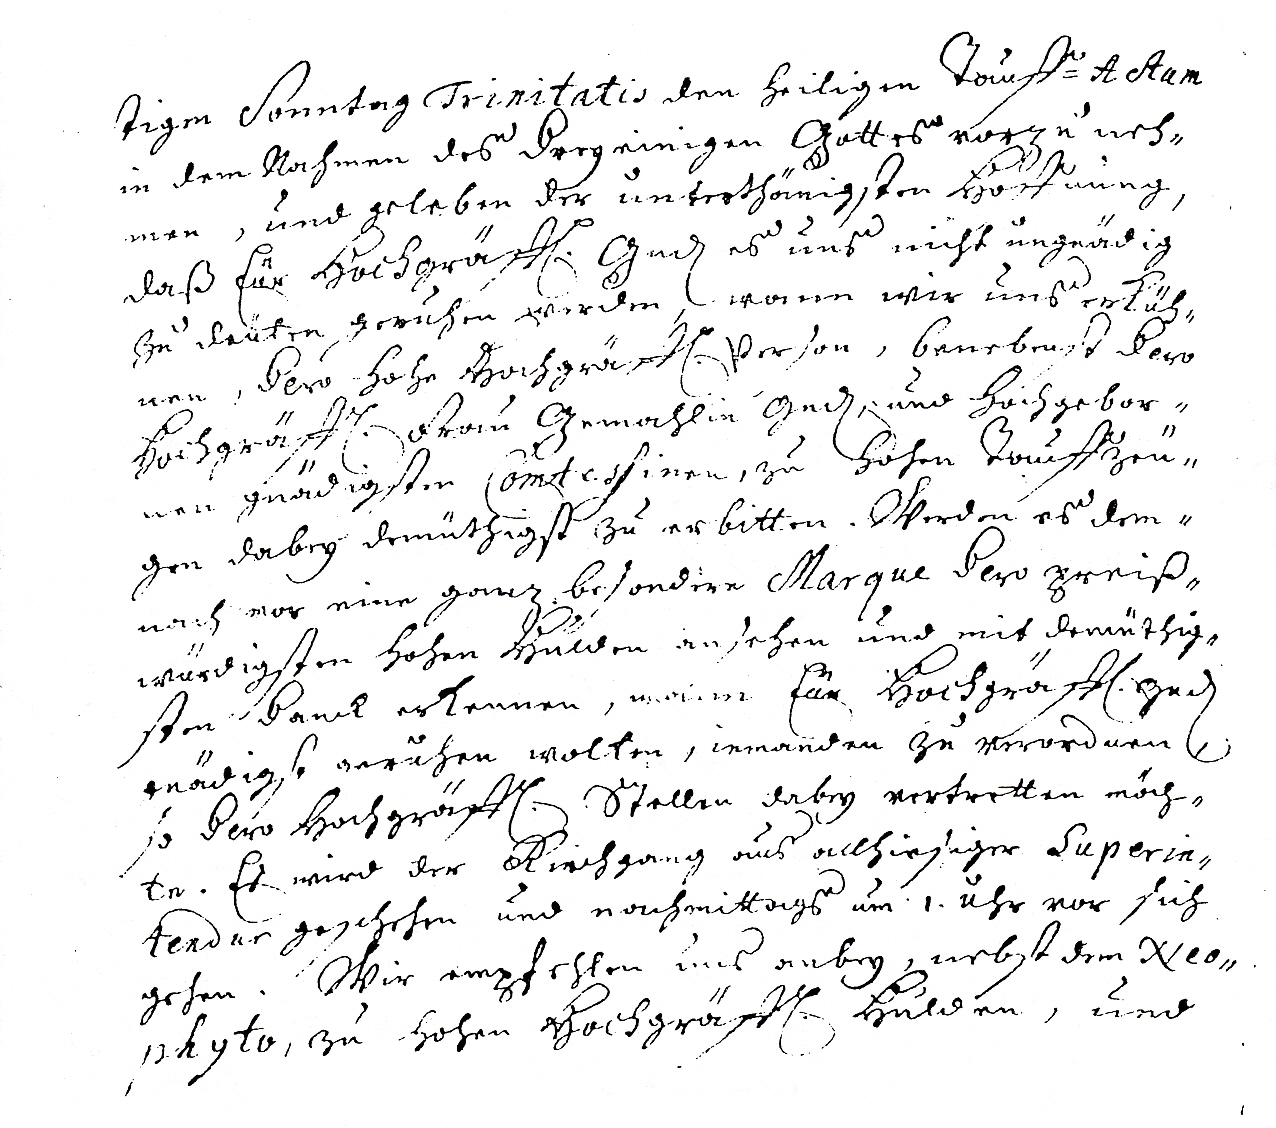 tigen Sonntag Trinitatis den heiligen Tauff= Actum
in dem Nahmen des dreyeinigen Gottes vorzuneh=
men, und geleben der unterthänigsten Hoffnung,
daß Eür Hochgräffl. Gnd. es uns nicht ungnädig
zu deuten geruhen werden, wann wir uns erküh=
nen, dero hohe Hochgräffl. Person, benebenst dero
Hochgräffl. Frau Gemahlin Gnd. und hochgebor=
nen gnädigsten Comtessinen, zu hohen Tauffzeü=
gen dabey demüthigst zu erbitten. Werden es dem=
nach vor eine ganz besondere Marque dero preiß=
würdigsten hohen Hulden ansehen und mit demüthig=
sten Danck erkennen, wann Eür Hochgräffl. Gnd.
gnädigst geruhen wolten, iemanden zu verordnen,
so dero Hochgräffl. Stellen dabey vertretten möch=
te. Es wird der Kirchgang aus allhiesiger Superin=
tendur geschehen und nachmittags um 1. Uhr vor sich
gehen. Wir empfehlen uns anbey, nebst dem Neo=
phyto, zu hohen Hochgräffl. Hulden, und